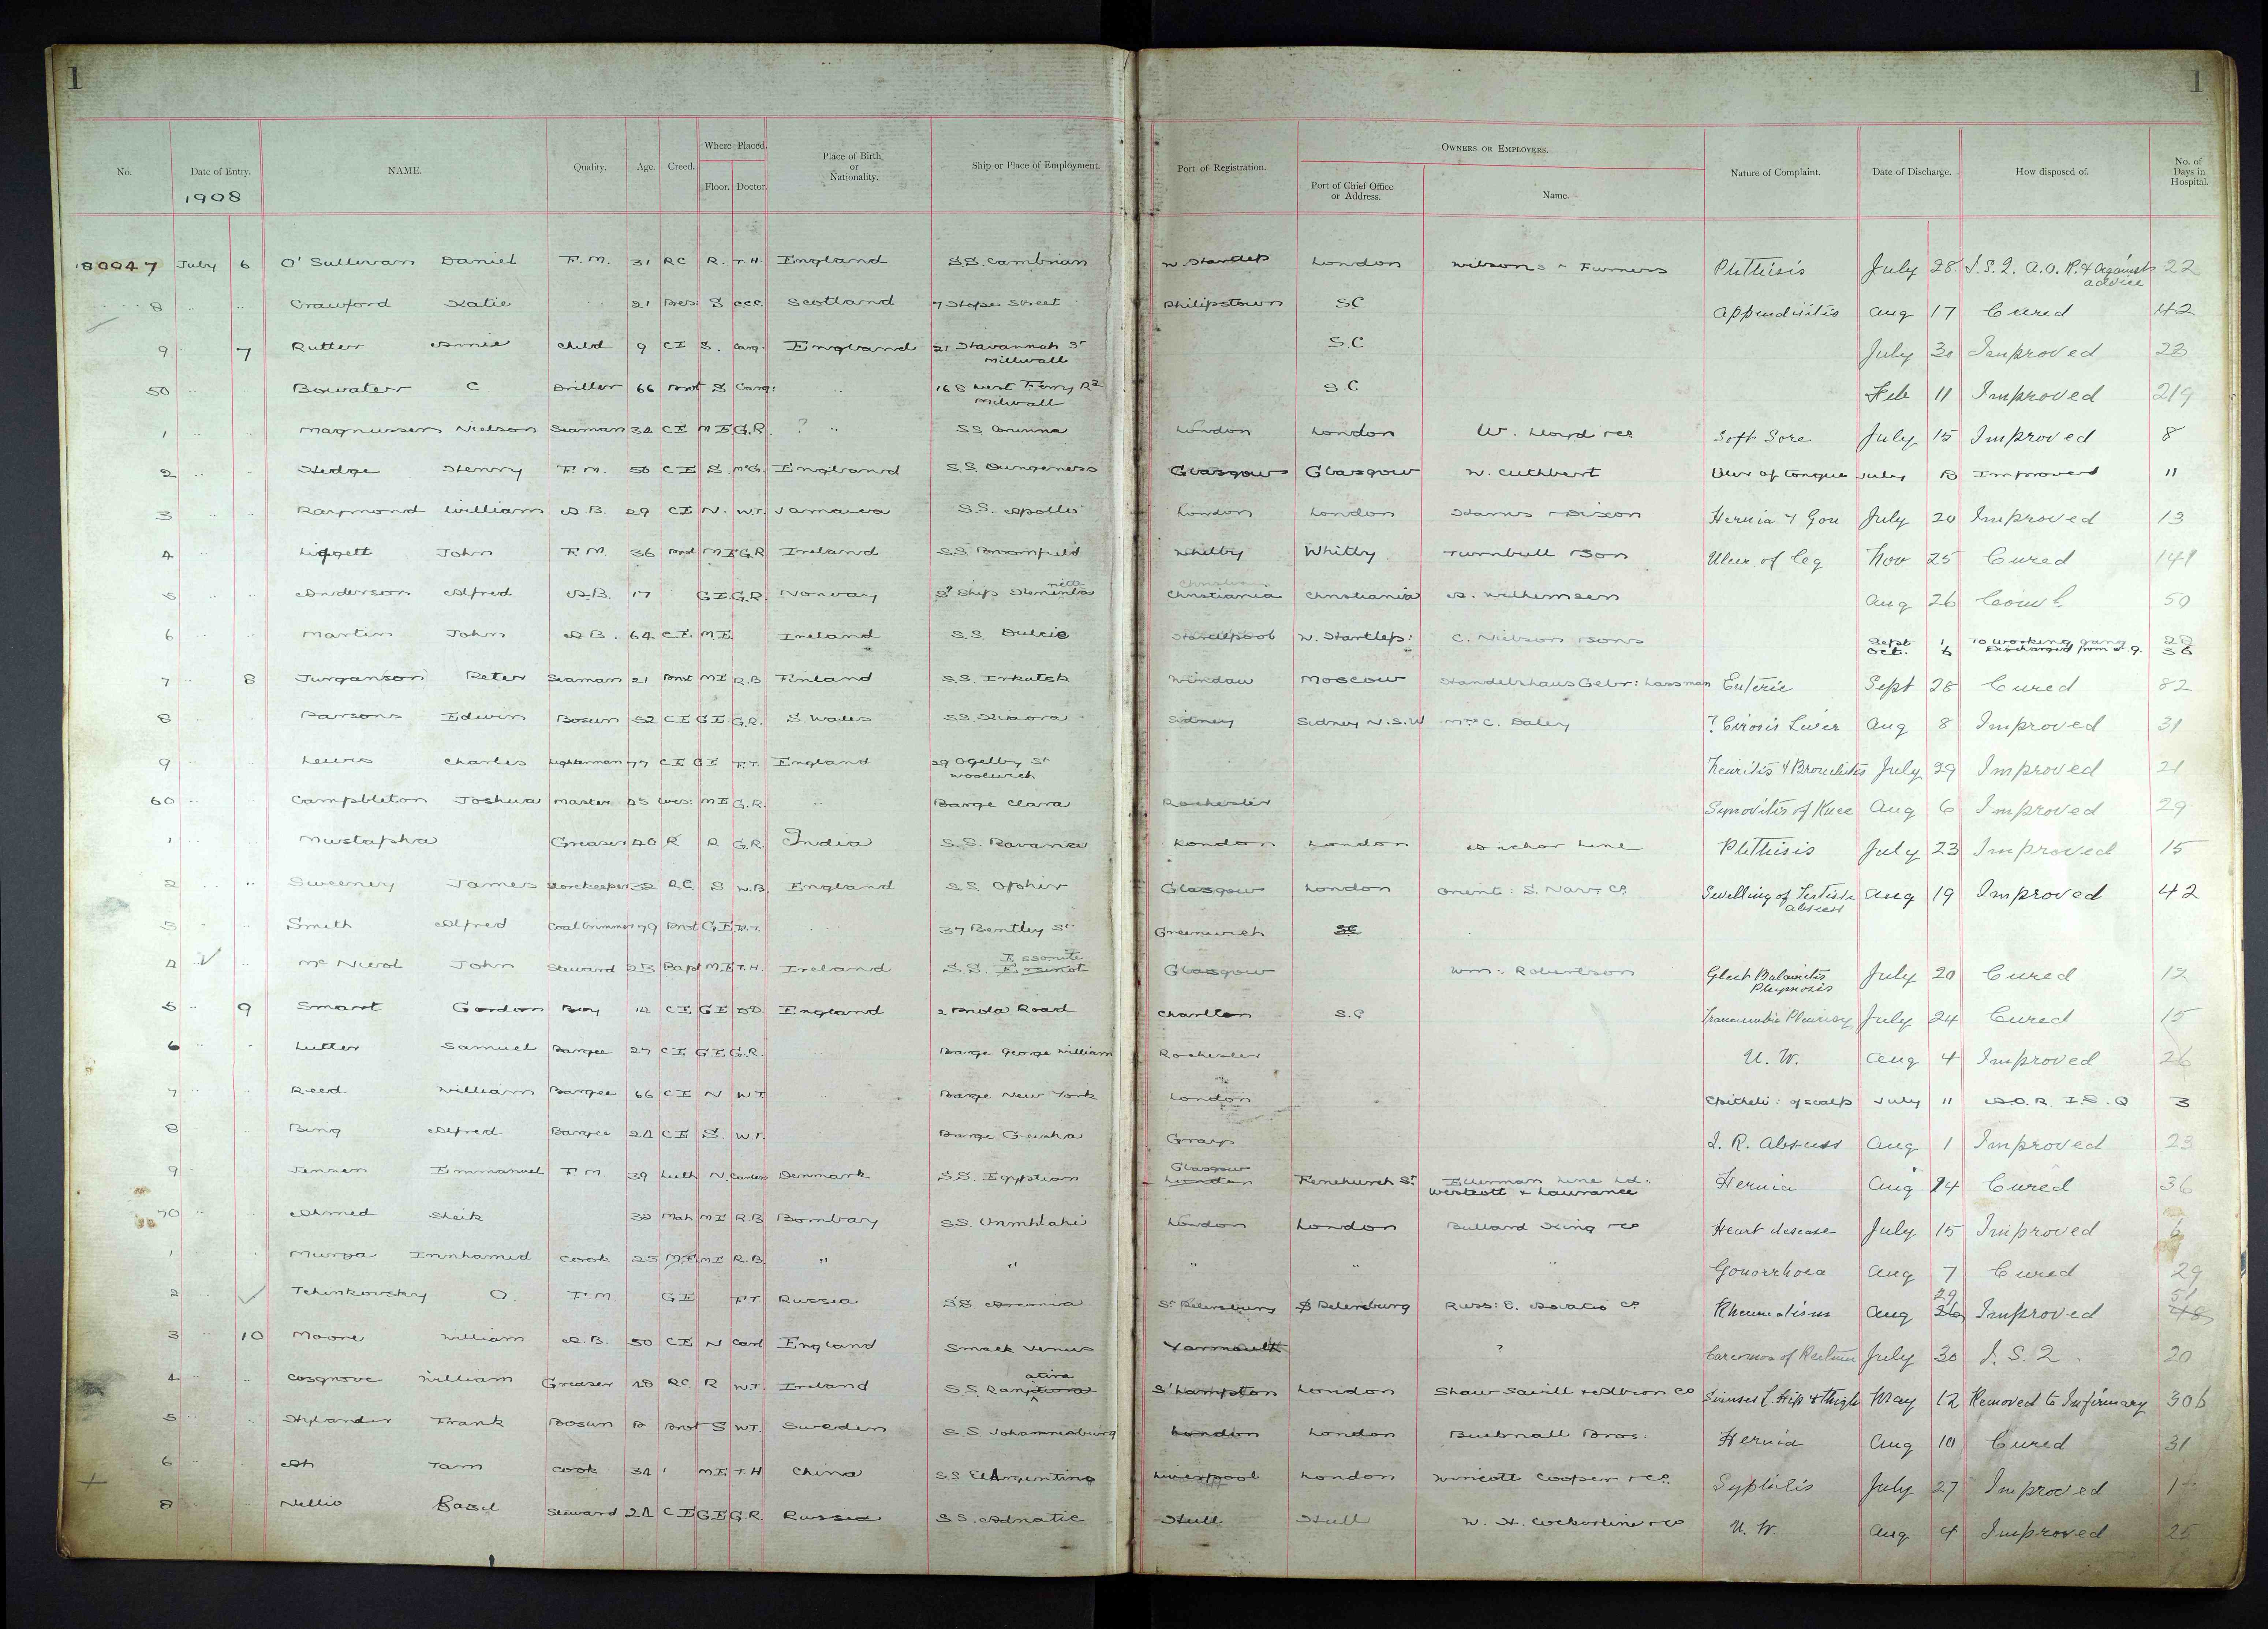 1 1
No. Date of Entry. NAME. Quality. Age. Creed. Where Placed. Floor. Doctor. Place of Birth or Nationality. Ship or Place of Employment. Port of Registration. OWNERS OR EMPLOYERS. Port of Chief Office or Address. Name. Nature of Complaint. Date of Discharge. How disposed of. No. of Days in Hospital.
1908
180047 July 6 O'Sullivan Daniel F.M. 31 RC R. T.H. England S.S. Cambrian W. Hartlep London Wilsons & Furness Phthisis July 28 I.S.2. A.O.R. & against advice 22
8 Crawford Katie 21 Pres: S C.C.C. Scotland 7 Hope Street Philipstown S.C. Appendicitis Aug 17 Cured 42
9 7 Rutter Annie Child 9 CE S. Carg: England 21 Havannah St Millwall S.C July 30 Improved 23
50 Bowater C Driller 66 Prot S Carg: 168 West Ferry Rd Millwall S.C Feb 11 Improved 219
1 Magnussen Nielson Seaman 34 CE ME G.R. ? S.S. Corunna London London W. Lloyd & Co Soft Sore July 15 Improved 8
2 Hedge Henry F.M. 50 CE S. McG. England S.S. Dungeness Glasgow Glasgow W. Cuthbert Ulcer of tongue July 18 Improved 11
3 Raymond William A.B. 29 CE N. W.T. Jamaica S.S. Apollo London London Harris & Dixon Hernia & Gon July 20 Improved 13
4 Liggett John F.M. 36 Prot ME G.R. Ireland S.S. Broomfield Whitby Whitby Turnbull & Son Ulcer of leg Nov 25 Cured 141
5 Anderson Alfred A.B. 17 GE G.R. Norway S. Ship Christiania Christiania A. Wilhemsen Aug 26 50
6 Martin John A.B. 64 CE ME Ireland S.S. Dulcie Hartlepool W. Hartlep: C. Nielson & Sons Sept 1 To working gang 28
Oct. 6 Discharged from W.G. 36
7 8 Jurganson Peter Seaman 21 Prot ME R.B Finland S.S. Irkutsk Windau Moscow Handelshaus Gebr: Lassman Enteric Sept 28 Cured 82
8 Parsons Edwin Bosun 52 CE GE G.R. S. Wales S.S. Kiaora Sidney Sidney N.S.W Mrs C. Daley ? Cirosis Liver Aug 8 Improved 31
9 Lewis Charles Lighterman 77 CE GE F.T. England 29 Ogelby St Woolwich Neuritis & Bronchitis July 29 Improved 21
60 Campbleton Joshua Master 45 Wes: ME G.R. Barge Clara Rochester Synovitis of Knee Aug 6 Improved 29
1 Mustapha Greaser 40 R R G.R. India S.S. Bavaria London London Anchor Line Phthisis July 23 Improved 15
2 Sweeney James Storekeeper 32 R.C. S W.B. England S.S. Ophir Glasgow London Orient: S. Nav: Co. Swelling of Testicle abscess Aug 19 Improved 42
3 Smith Alfred Coal trimmer 79 Prot GE F.T. 37 Bentley St Greenwich SC
4 McNicol John Steward 23 Bapt ME T.H. Ireland S.S. Essonite Glasgow Wm: Robertson Gleet Balanitis Phymosis July 20 Cured 12
5 9 Smart Gordon Boy 12 CE GE England 2 Road Charlton S.C Pleurisy July 24 Cured 15
6 Lutter Samuel Bargee 27 CE GE G.R. Barge George William Rochester U.W. Aug 4 Improved 26
7 Reed William Bargee 66 CE N W.T. Barge New York London Epitheli: of scalp July 11 A.O.R. I.S.Q 3
8 Bing Alfred Bargee 24 CE S. W.T. Barge Geisha Grays I.R. Abscess Aug 1 Improved 23
9 Jensen Emmanuel F.M 39 Luth N. Carless Denmark S.S. Egyptian London Glasgow Fenchurch St Ellerman Line Ld: Westcott & Lawrance Hernia Aug 14 Cured 36
70 Ahmed Sheik 32 Mah ME R.B Bombay S.S. Umhlahi London London Bullard King & Co Heart disease July 15 Improved 6
1 Murza Innhamed Cook 25 ME ME R.B. " " " " " Gonorrhoea Aug 7 Cured 29
2 Tchinkovsky O. F.M. GE F.T. Russia S.S. Arconia St Petersburg St Petersburg Russ: E. Asiatic Co Rheumatism Aug 29 Improved 51
3 10 Moore William A.B. 50 CE N Carl England Smack Venus Yarmouth ? Carcinoma of Rectum July 30 I.S.2. 20
4 Cosgrove William Greaser 48 R.C. R W.T. Ireland S.S. Rangatira S'hampton London Shaw Savill & Albion Co Sinuses L. Hip & thigh May 12 Removed to Infirmary 306
5 Hylander Frank Bosun Prot S W.T. Sweden S.S. Johannesburg London London Bucknall Bros: Hernia Aug 10 Cured 31
6 Ah Tam Cook 34 ME T.H China S.S. El Argentino Liverpool London Wincott Cooper & Co. Syphilis July 27 Improved 17
8 Nellio Basil Steward 24 CE GE G.R. Russia S.S. Adriatic Hull Hull W.H. Cockerline & Co U.W. Aug 4 Improved 25